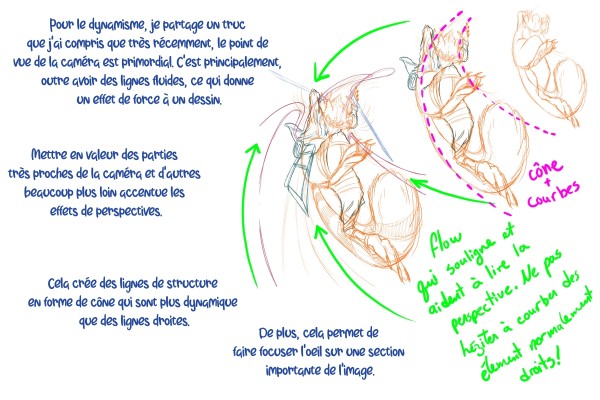 Pour le dynamisme, je partage un truc
que j'ai compris que très récemment, le point de
vue de la caméra est primordial. C'est principalement,
outre avoir des lignes fluides, ce qui donne
un effet de force à un dessin.
Mettre en valeur des parties
très proches de la caméra et d'autres
beaucoup plus loin accentue les
effets de perspectives.
Cela crée des lignes de structure
en forme de cône qui sont plus dynamique
que des lignes droites.
De plus, cela permet de
faire focuser l'oeil sur une section
importante de l'image.
cône
+
courbes
flow
qui souligne et
aident à lire la
perspective. Ne pas
hésiter à courber des
élement normalement
droits!